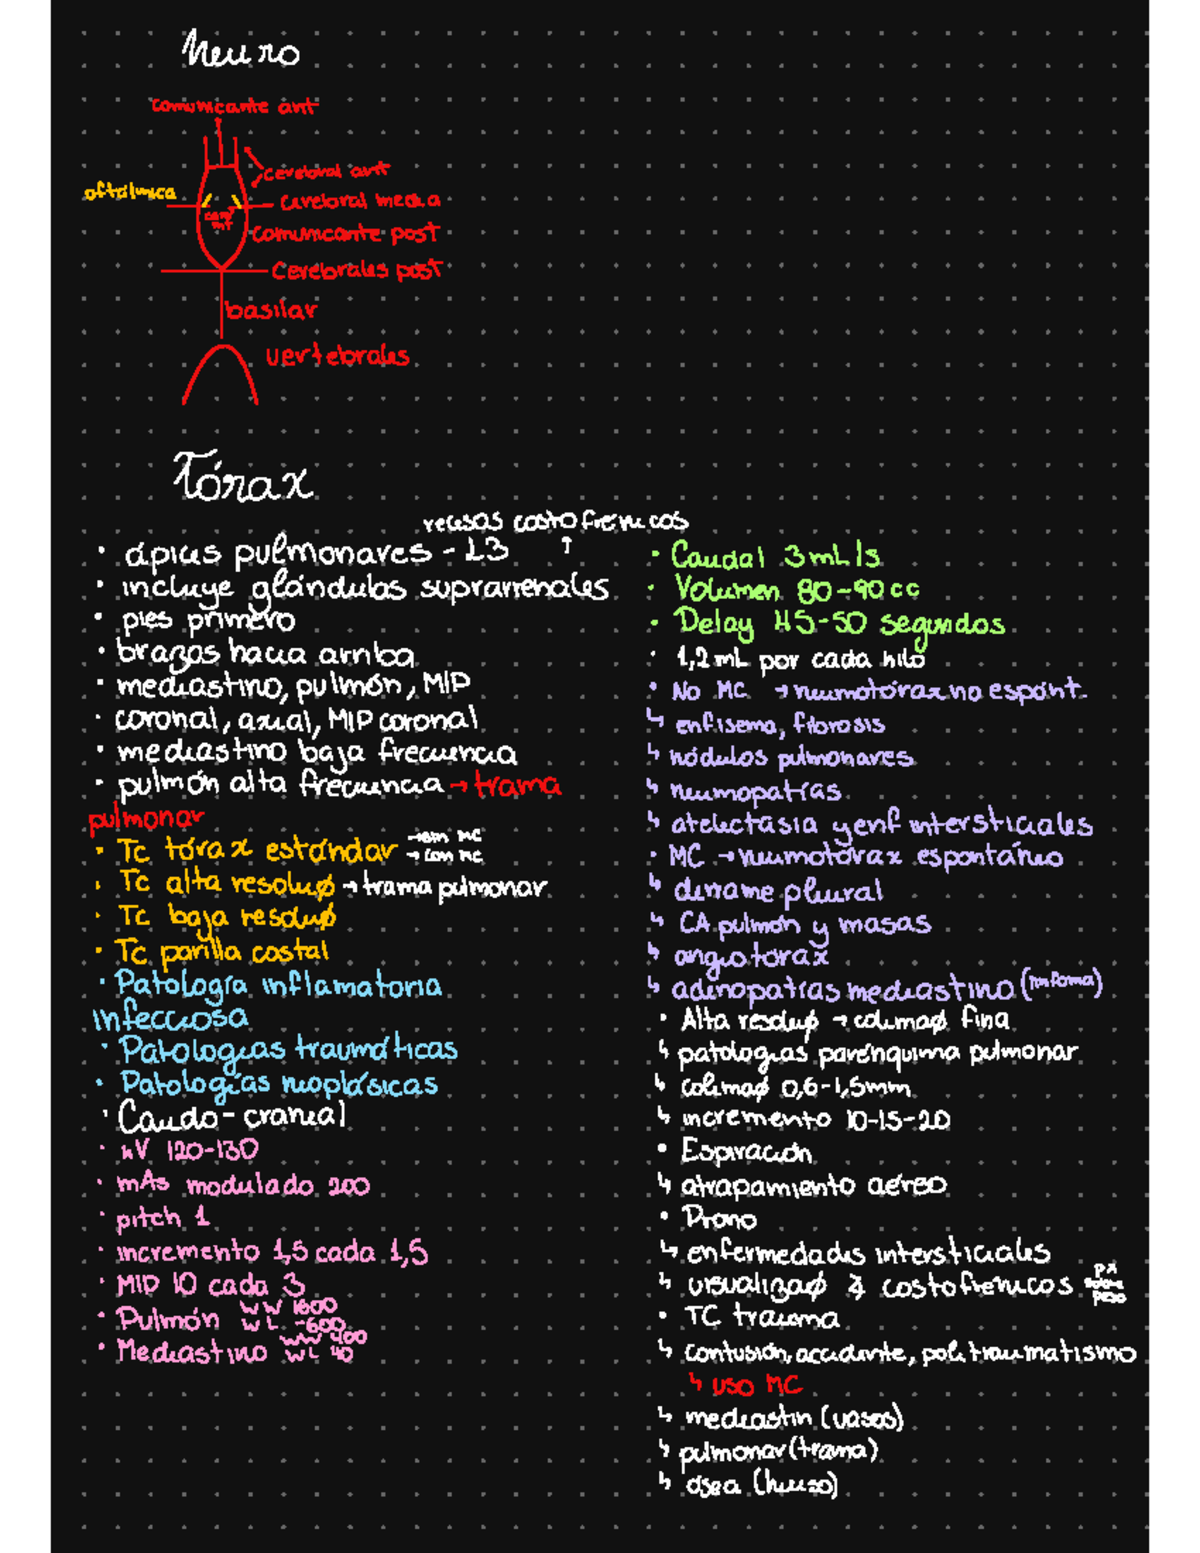 Neuro
comunicante ant
cerebral ant
oftálmica
cerebral media
comunicante post
Cerebrales post
basilar
vertebrales
Tórax
recesos costofrenicos
↑
· ápices pulmonares - L3
· incluye glándulas suprarrenales
· pies primero
· brazos hacia arriba
· mediastino, pulmón, MIP
· coronal, axial, MIP coronal
· mediastino baja frecuencia
· pulmón alta frecuencia → trama
pulmonar
· Tc tórax estándar → sin MC
→ con MC
· Tc alta resoluø → trama pulmonar
· Tc baja resoluø
· Tc parilla costal
· Patología inflamatoria
infecciosa
· Patologías traumáticas
· Patologías neoplásicas
· Caudo-craneal
· kV 120-130
· mAs modulado 200
· pitch 1
· incremento 1,5 cada 1,5
· MIP 10 cada 3
· Pulmón WW 1600
WL -600
· Mediastino WW 400
WL 40
· Caudal 3mL/s
· Volumen 80-90cc
· Delay 45-50 segundos
· 1,2mL por cada kilo
· No MC → neumotórax no espónt.
↳ enfisema, fibrosis
↳ nódulos pulmonares
↳ neumopatías
↳ atelectasia y enf intersticiales
· MC → neumotórax espontáneo
↳ derrame pleural
↳ CA pulmón y masas
↳ angiotorax
↳ adenopatías mediastino (linfoma)
· Alta resoluø → colimaø fina
↳ patologías parénquima pulmonar
↳ colimaø 0,6-1,5mm
↳ incremento 10-15-20
· Espiración
↳ atrapamiento aéreo
· Prono
↳ enfermedades intersticiales
↳ visualizaø costofrenicos px
sobre
peso
· TC trauma
↳ contusión, accidente, politraumatismo
↳ uso MC
↳ mediastin (vasos)
↳ pulmonar (trama)
↳ ósea (hueso)